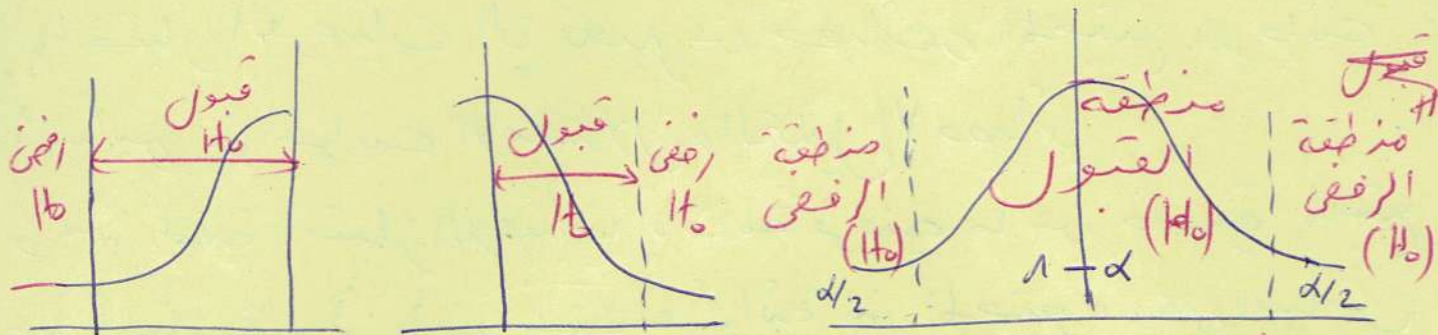 رفض
H₀
قبول
H₀
قبول
H₀
رفض
H₀
منطقة
الرفض
(H₀)
α/2
منطقة
القبول
(H₀)
1 - α
قبول
H
منطقة
الرفض
(H₀)
α/2